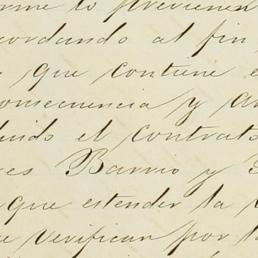 me lo previenen
cordando al fin
que contiene e
onsecuencia y an
uido el contrato
es Barrio y
que estender la
e verifican por la